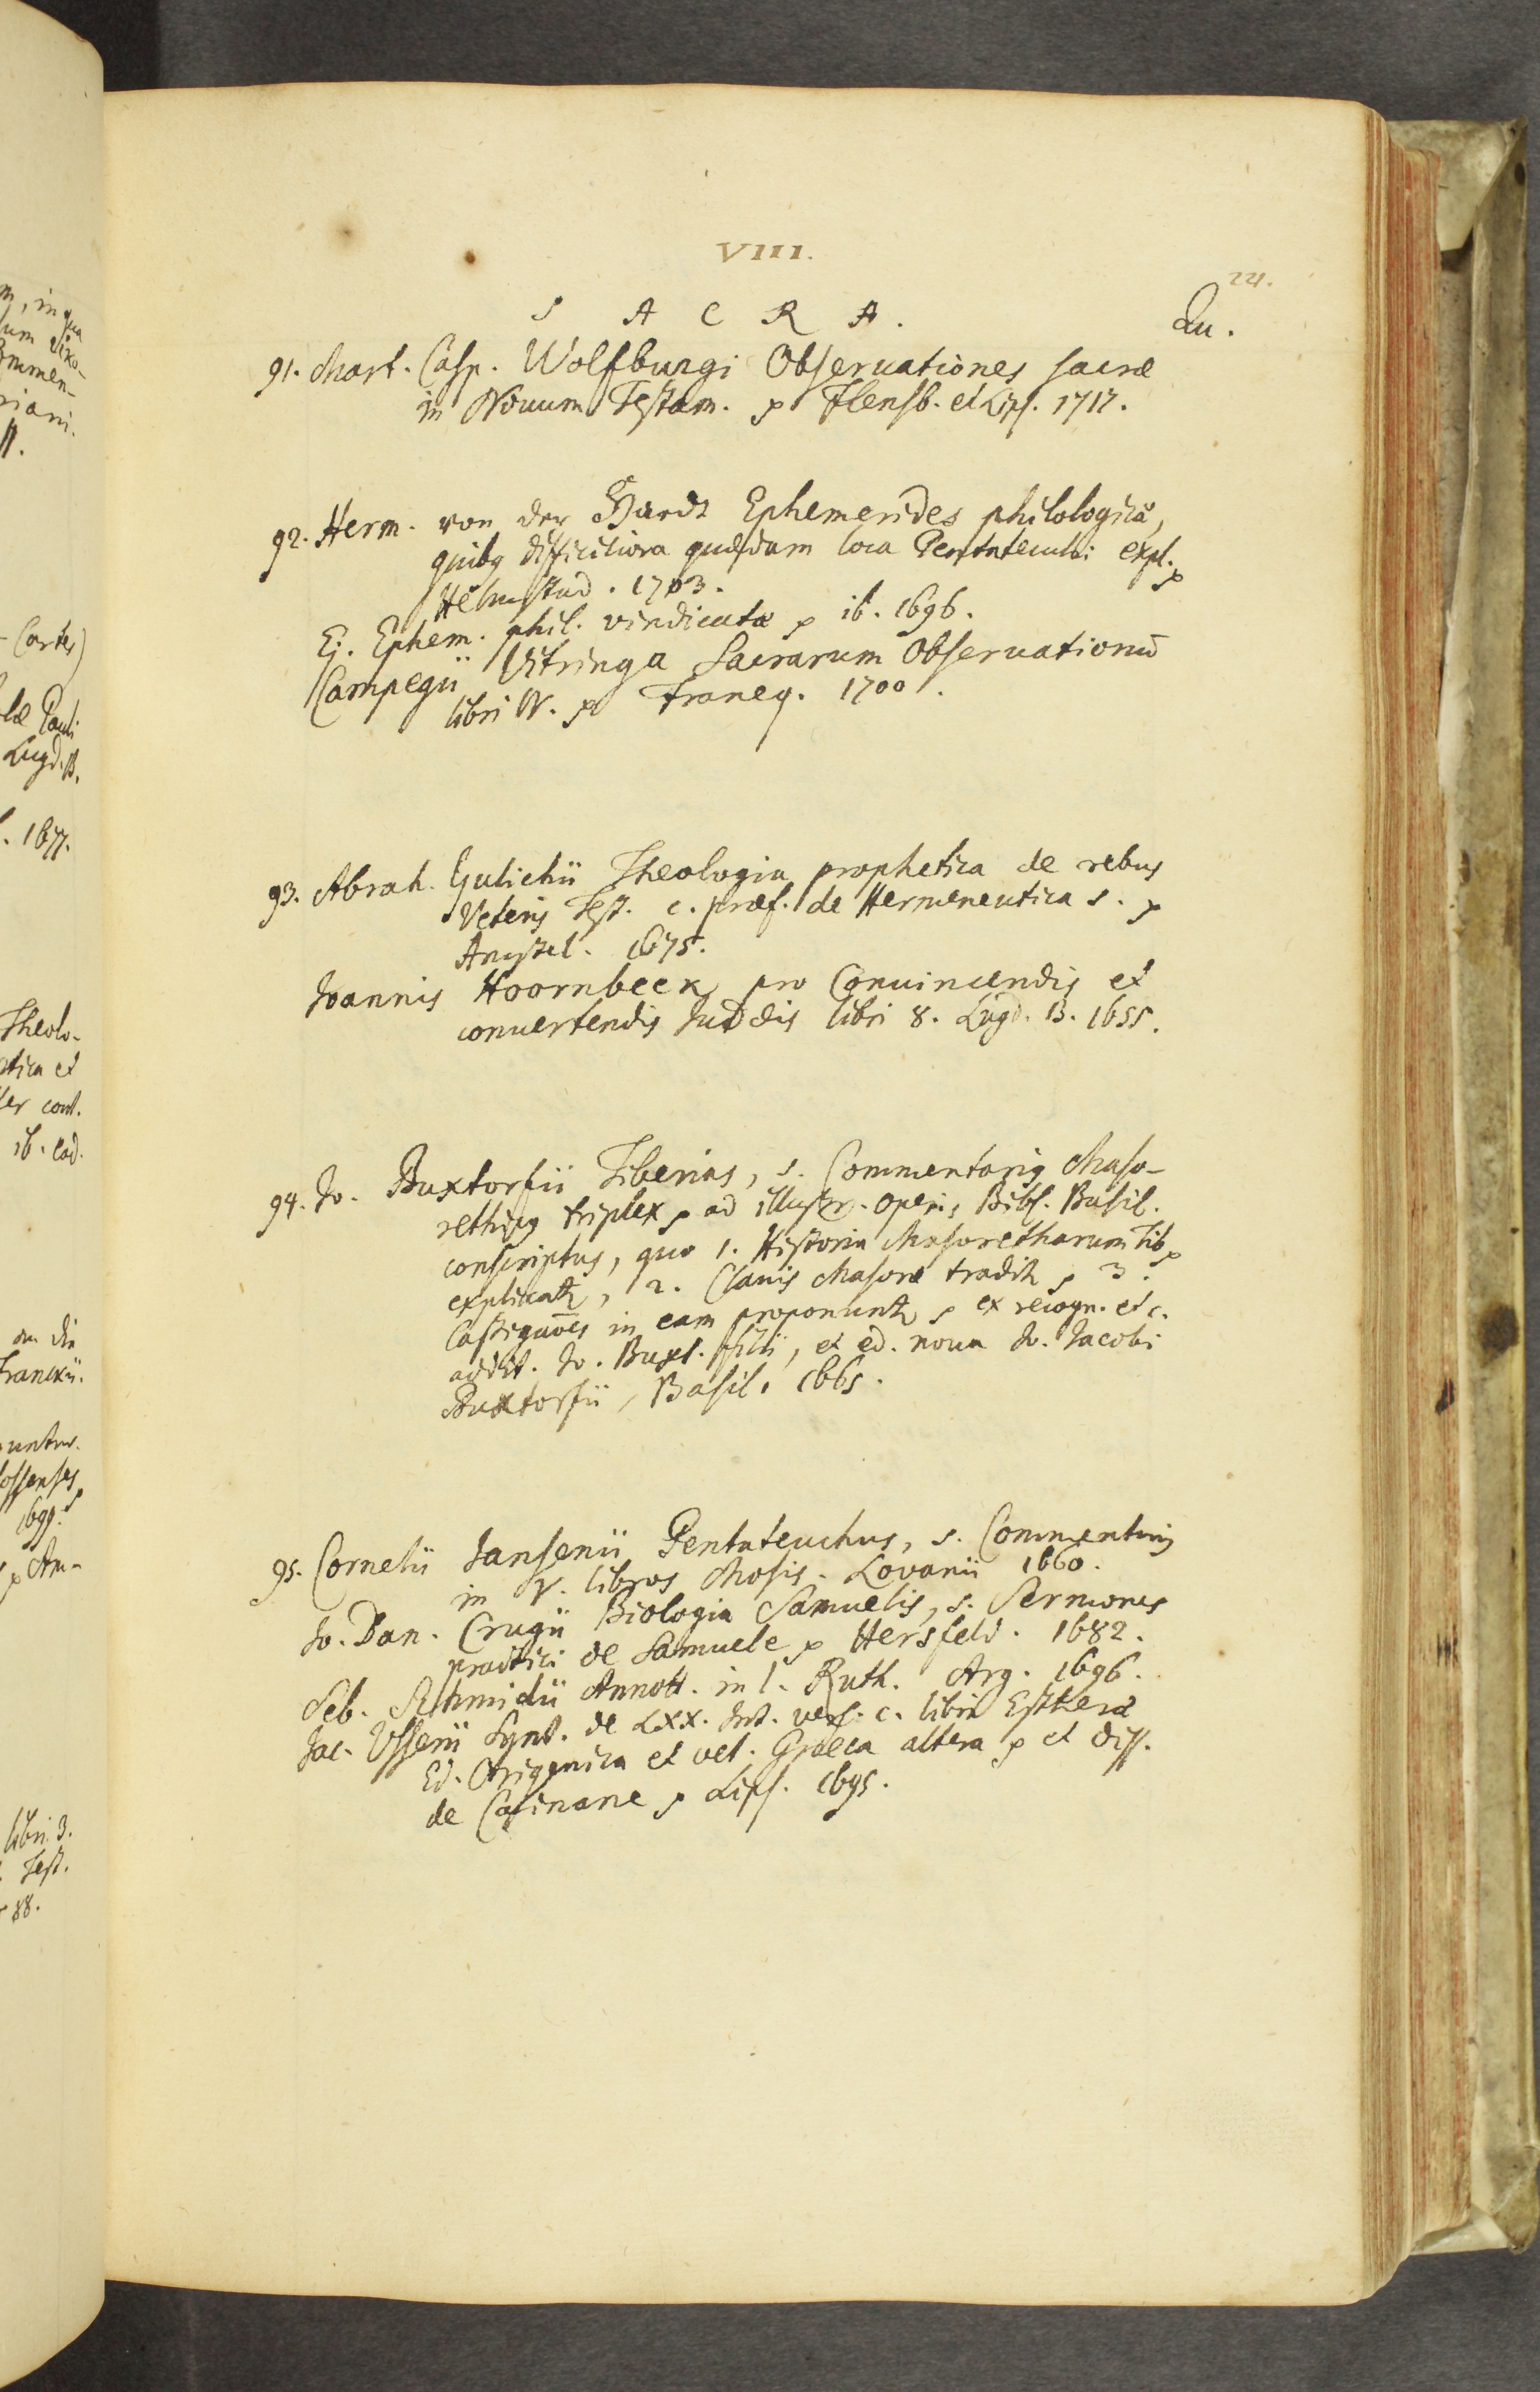 VIII.
24.
S A C R A.
Qu.
91. Mart. Casp. Wolfburgi Observationes sacræ
in Novum Testam. p Flensb. et Lips. 1717.
92. Herm. von der Hardt Ephemerides philologicæ,
quibq difficiliora quædam loca Pentateuchi expl. p
Helmstad. 1703.
Ej. Ephem. phil. vindicatæ p ib. 1696.
Campegii Vitringa Sacrarum Observationū
libri IV. p Franeq. 1700.
93. Abrah. Gulichii Theologia prophetica de rebus
Veteris Test. c. præf. de Hermeneutica s. p
Amstel. 1675.
Joannis Hoornbeek pro Convincendis et
convertendis Judæis libri 8. Lugd. B. 1655.
94. Jo. Buxtorfii Tiberias, s. Commentariq Maso-
rethicq triplex p ad illustr. operis Bibl. Basil.
conscriptus, quo 1. Historia Masoretharum Tib p
explicatr, 2. Clavis Masoræ traditr p 3.
Castigaōes in eam proponuntr p ex recogn. et c.
addit. Jo. Buxt. filii, et ed. nova Jo. Jacobi
Buxtorfii, Basil. 1665.
95. Cornelii Jansenii Pentateuchus, s. Commentariq
in V. libros Mosis. Lovanii 1660.
Jo. Dan. Crugii Biologia Samuelis, s. Sermones
practici de Samuele p Hersfeld. 1682.
Seb. Schmidii Annott. in l. Ruth. Arg. 1696.
Jac. Usserii Synt. de LXX. Int. vers. c. libri Estheræ
Ed. Origenica et vet. Græca altera p et diss.
de Cainane p Lips. 1695.